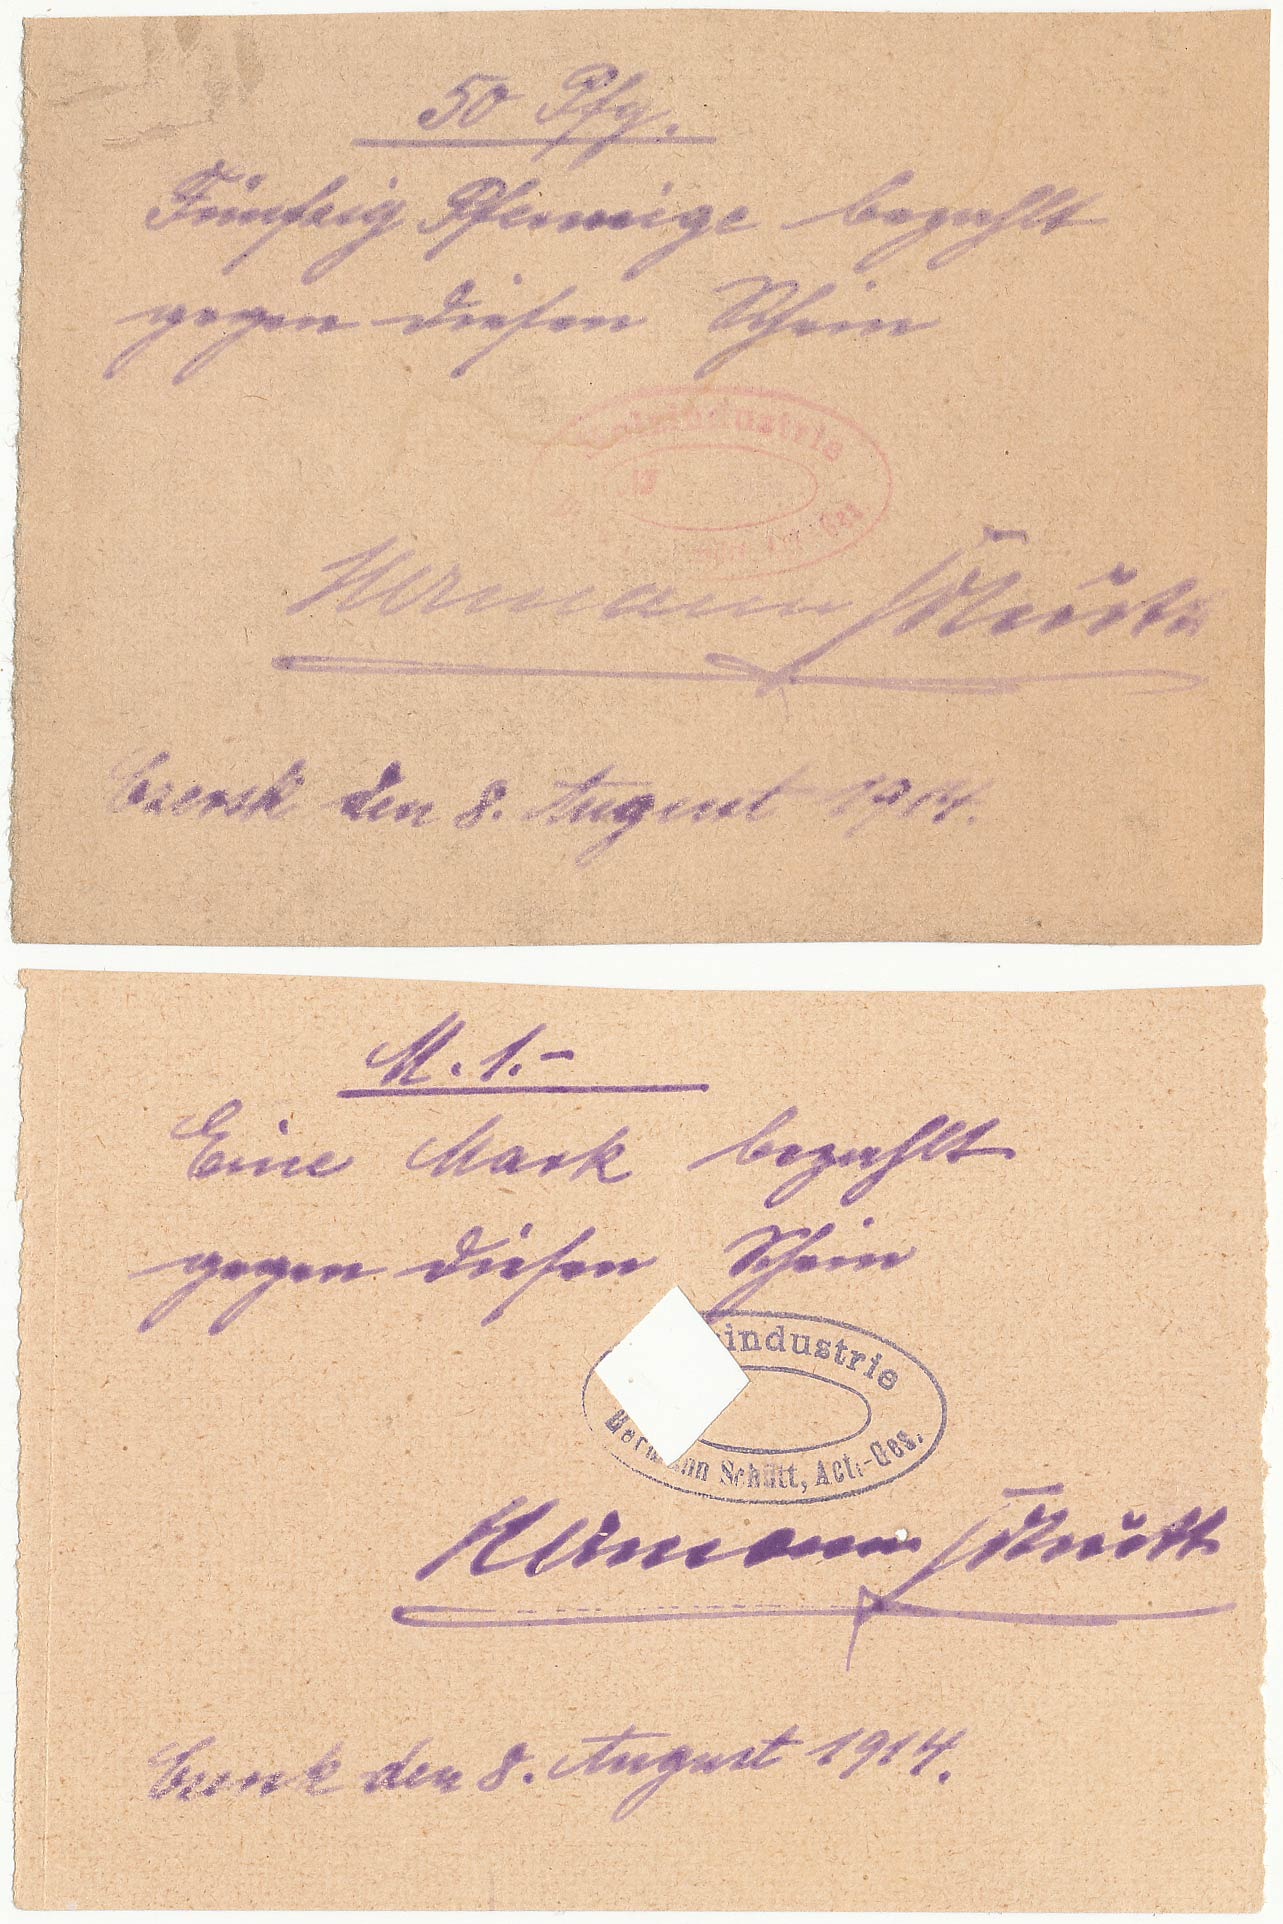 50 Pfg.
Fünfzig Pfennige bezahlt
gegen diesen Schein
Holzindustrie
Act.-Ges.
Hermann Schütt
Czersk den 8. August 1914.
M. 1.-
Eine Mark bezahlt
gegen diesen Schein
industrie
Hermann Schütt, Act.-Ges.
Hermann Schütt
Czersk den 8. August 1914.